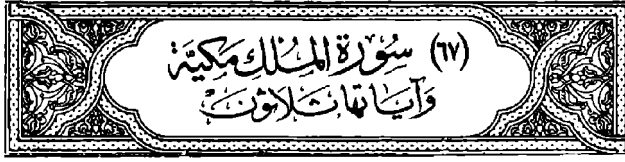 (٦٧) سُورَةُ المُلْكِ مَكِيَّة
وَآيَاتُهَا ثَلَاثُونَ